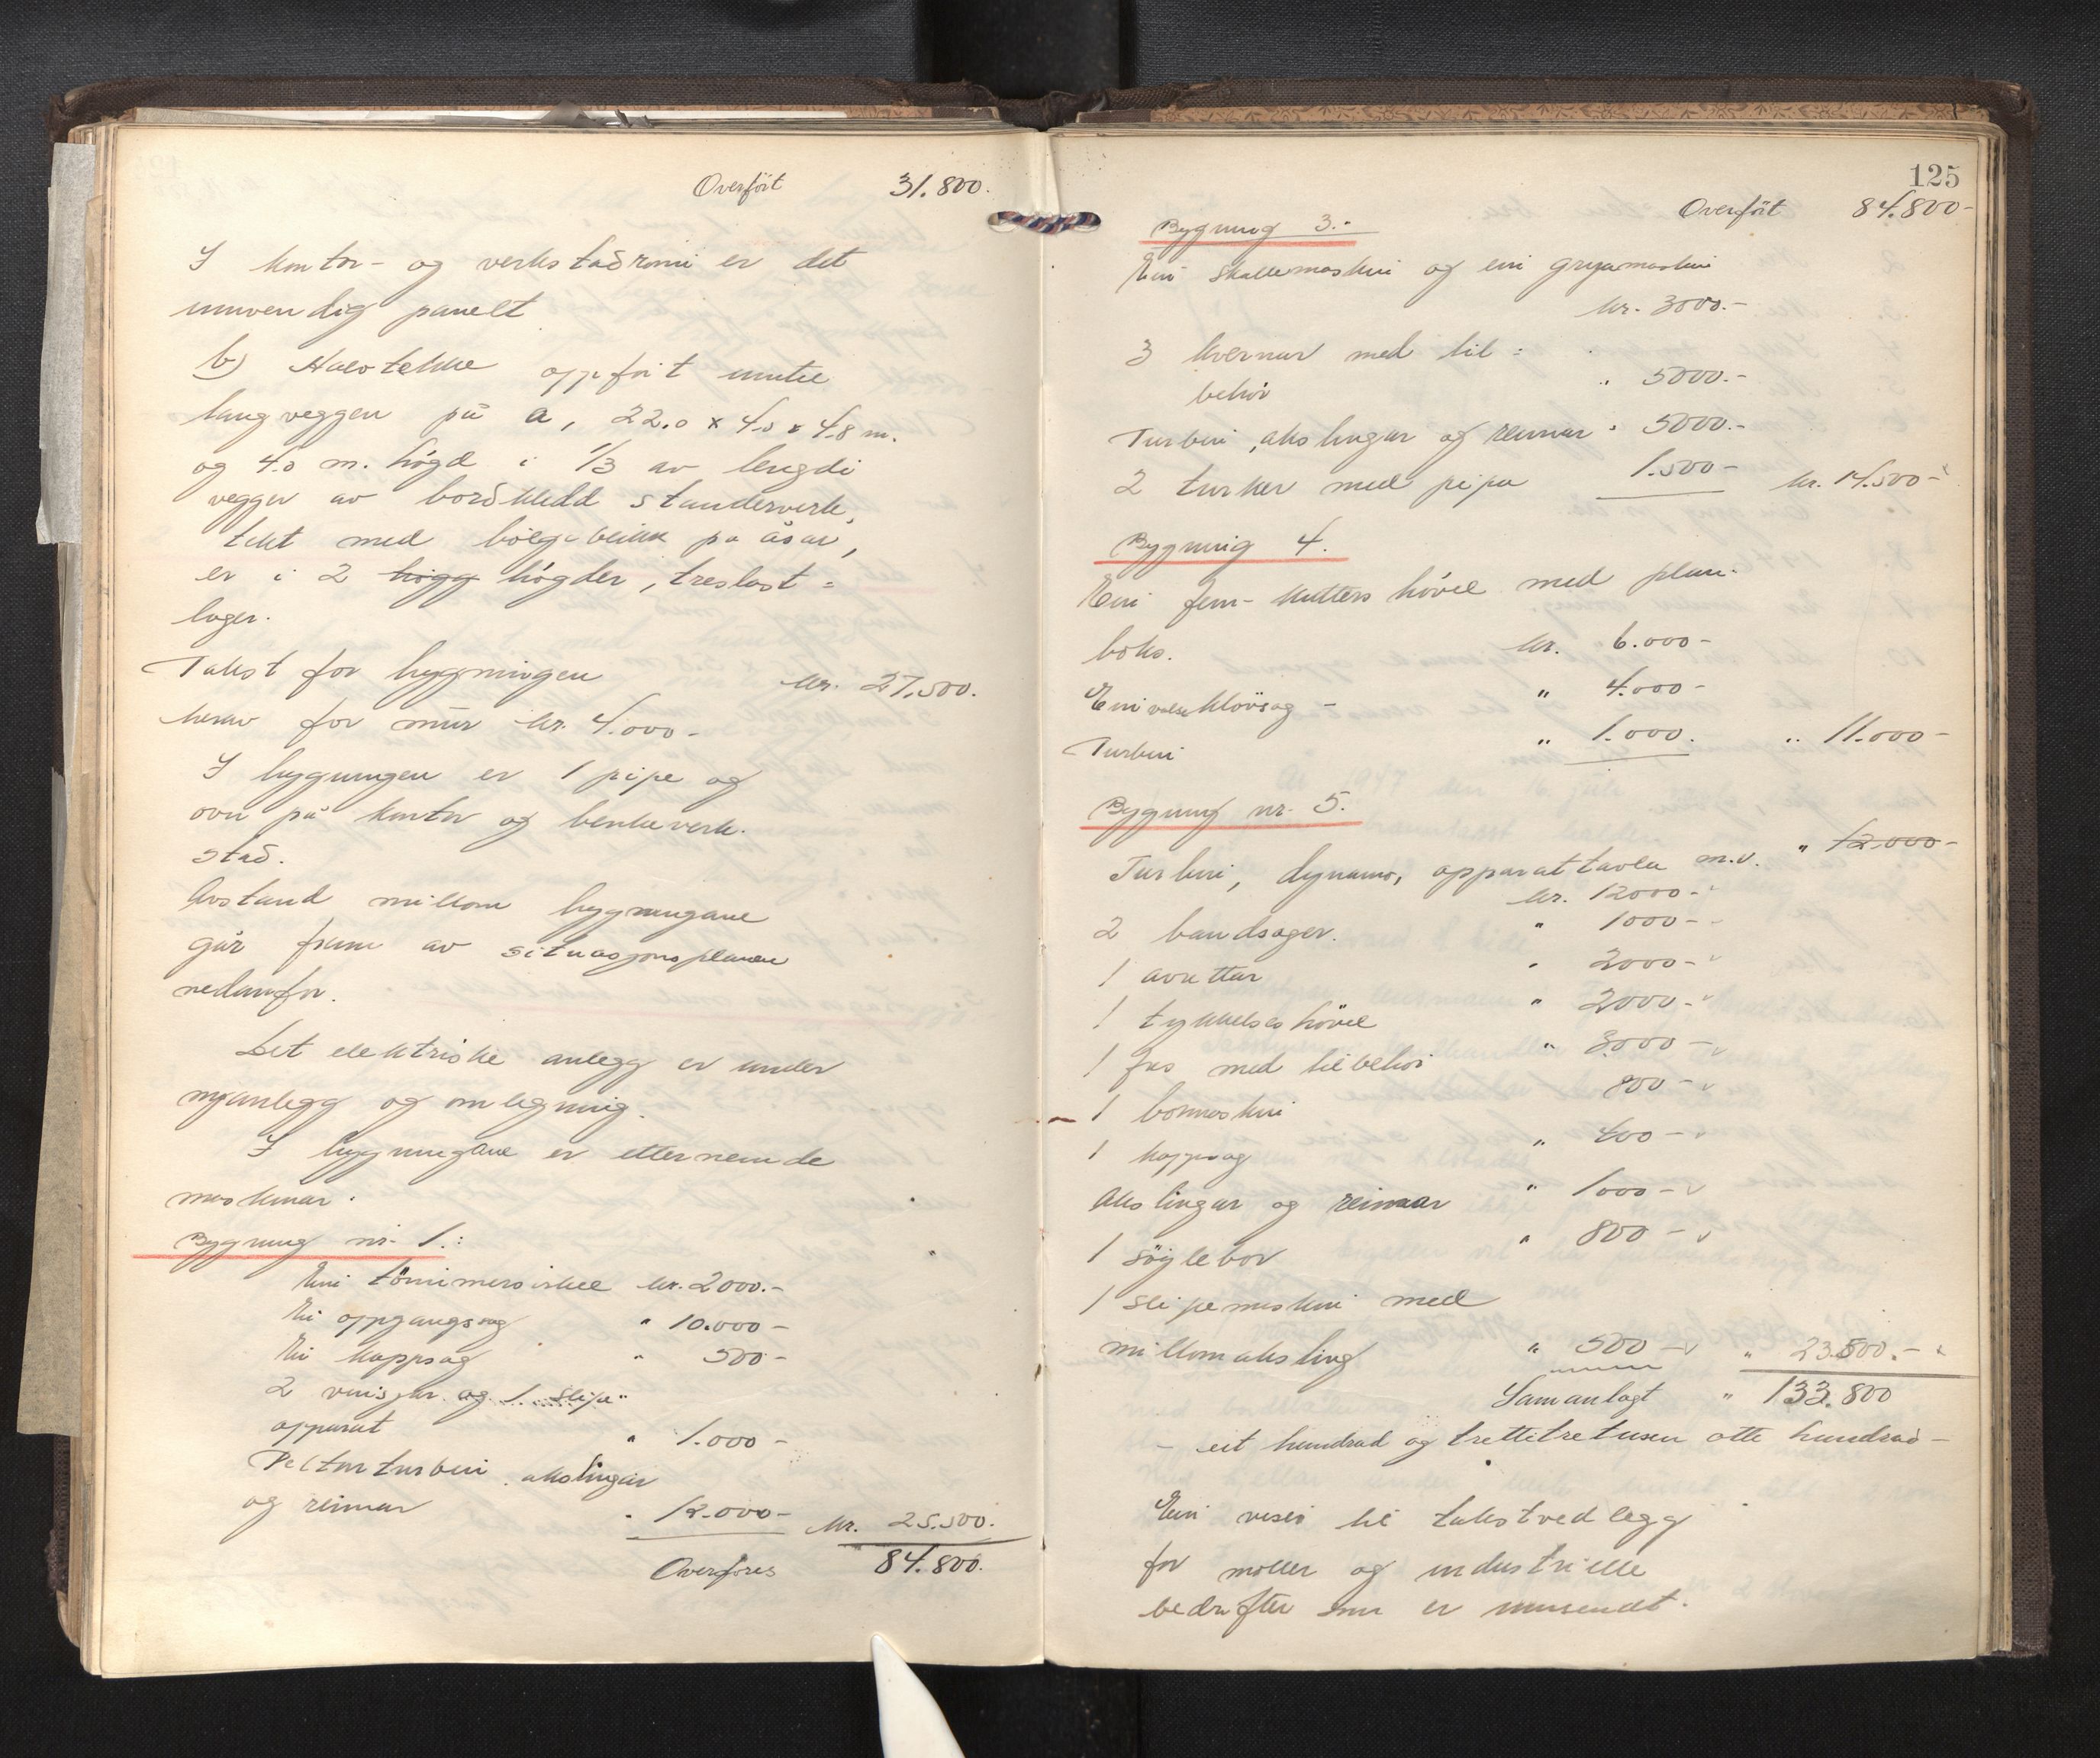 Overfört 31.800.
I kontor- og verkstaðromi er det
innvendig panelt
b) Halvtekke oppfört inntil
langveggen på a, 22.0 x 4.0 x 4.8 m.
og 4.0 m. högd i 1/3 av lengdi
vegger av borðkledd standerverk,
tekt med bölgeblikk på åsar,
er i 2 högg högder, treslast=
lager.
Takst for bygningen kr. 27.500.
herav for mur kr. 4.000-
I bygningen er 1 pipe og
ovn på kontor og benkeverk-
stað.
Avstand millom bygningane
går fram av situasjonsplanen
nedanfor.
Det elektriske anlegg er under
nyanlegg og omlegning.
I bygningane er etternemde
maskinar.
Bygning nr. 1.:
Eini tömmersirkel kr. 2000.-
Ei oppgangssag " 10.000-
Ei kappsag " 500-
2 vinsjar og 1 slipe"
apparat " 1.000-
Peltonturbin, akslingar
og reimar " 12.000- kr. 25.500.
Overföres 84.800.
125
Overfört 84.800-
Bygning 3.-
Ein skallemaskin og ein grynmaskin
kr. 3000.-
3 kvernar med til=
behör " 5000.-
Turbin, akslingar og reimar " 5000.-
2 turker med pipa 1.500- kr. 14.500-
Bygning 4.
Ein fem-kutters hövel med plan-
boks. kr. 6.000-
Ein valseklövsag - " 4.000-
Turbin " 1.000. " 11.000-
Bygning nr. 5.
Turbin, dynamo, apparattavla m.v. " 12.000-
kr. 12000-
2 bandsager. " 1000-
1 avrettar " 2000-
1 tykkelseshövel " 2000-
1 fres med tilbehör " 3.000-
1 bormaskin 800-
1 kappsag " 400-
Akslingar og reimar " 1000-
1 söylebor " 800-
1 slipemaskin med
millomaksling " 500- " 23.500.-
Samanlagt " 133.800
- eit hundrad og trettitretusen åtte hundrað-
Ein viser til takstvedlegg
for møller og industrielle
bedrifter som er innsendt.